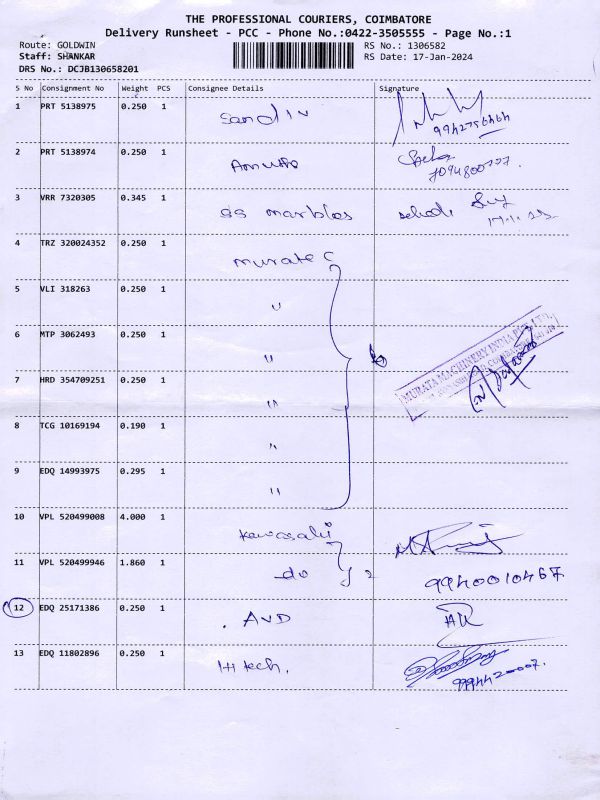 THE PROFESSIONAL COURIERS, COIMBATORE
Delivery Runsheet - PCC - Phone No.:0422-3505555 - Page No.:1
Route: GOLDWIN RS No.: 1306582
Staff: SHANKAR RS Date: 17-Jan-2024
DRS No.: DCJB130658201
S No Consignment No Weight PCS Consignee Details Signature
1 PRT 5138975 0.250 1
9942756464
2 PRT 5138974 0.250 1
3 VRR 7320305 0.345 1 SS marbles
4 TRZ 320024352 0.250 1 muratec
5 VLI 318263 0.250 1 "
6 MTP 3062493 0.250 1 "
MURATA MACHINERY INDIA PVT. LTD.
7 HRD 354709251 0.250 1 "
8 TCG 10169194 0.190 1 "
9 EDQ 14993975 0.295 1 "
10 VPL 520499008 4.000 1 kawasaki
11 VPL 520499946 1.860 1 do 2 9940010467
12 EDQ 25171386 0.250 1 . AVD
13 EDQ 11802896 0.250 1 Hitech.